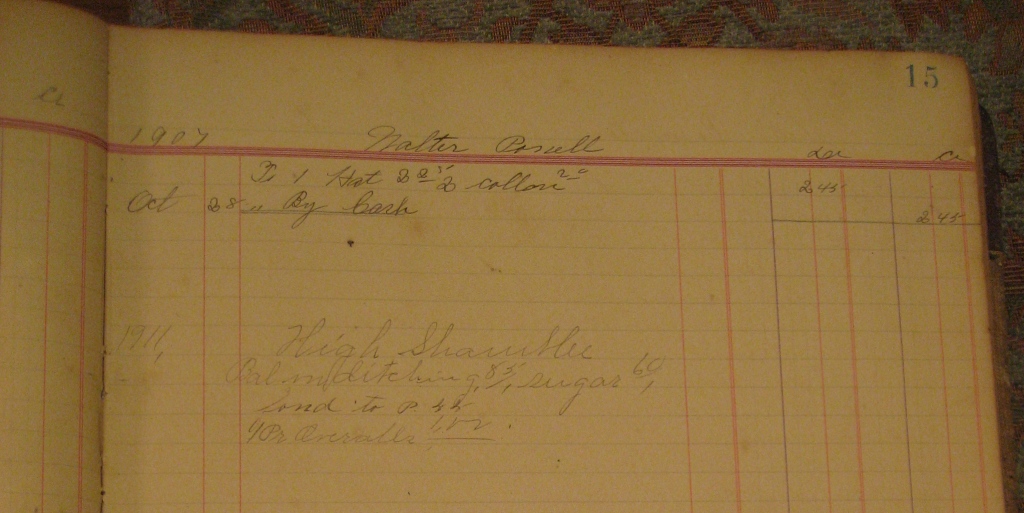 Cr
15
1907 Walter Powell Dr Cr
To 1 Hat 2 25 2 collon 20 2 45
Oct 28 " By Cash 2 45
1911, High Shamblee
Bal on ditching, 85, sugar 60,
to P
1 Pr Overalls 1,00.